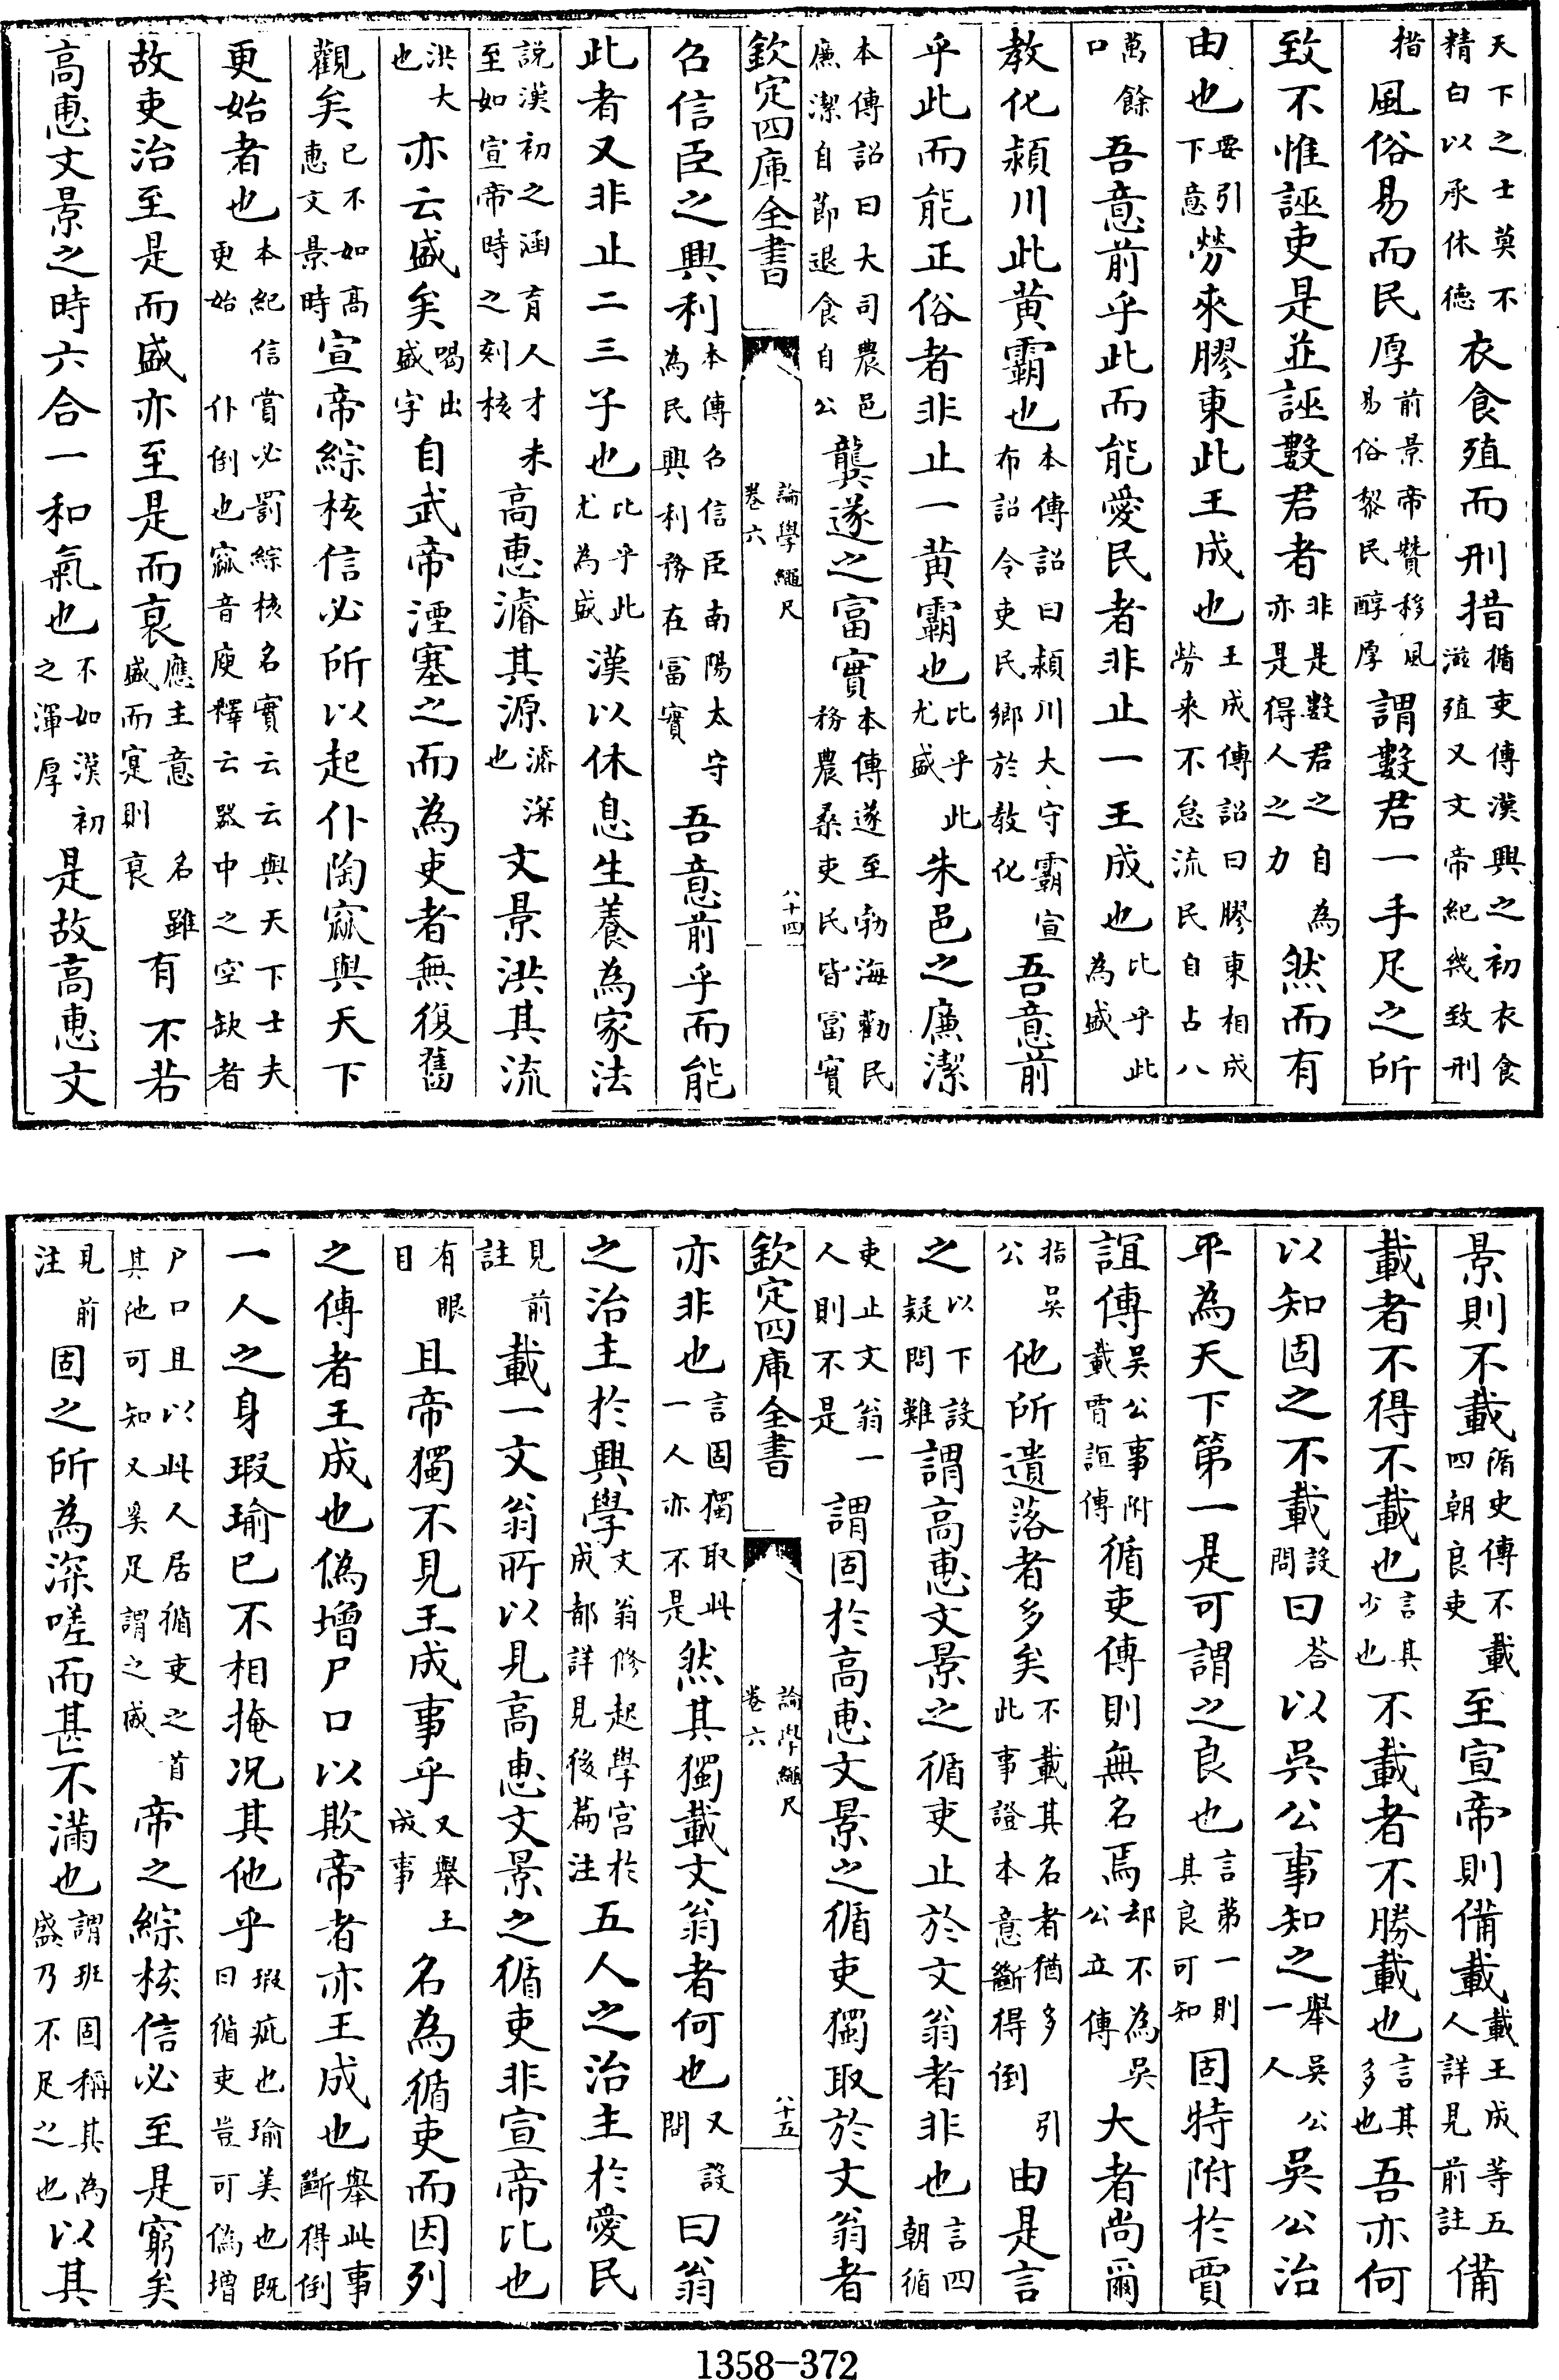 天下之士莫不精白以承休德衣食殖而刑措循吏傳漢興之初衣食滋殖又文帝紀幾致刑
措風俗易而民厚前景帝贊移風易俗黎民醇厚謂數君一手足之所
致不惟誣吏是並誣數君者非是數君之自為亦是得人之力然而有
由也要引下意勞來膠東此王成也王成傳詔曰膠東相成勞来不怠流民自占八
萬餘口吾意前乎此而能愛民者非止一王成也比乎此為盛
教化潁川此黃霸也本傳詔曰潁川大守霸宣布詔令吏民鄉於教化吾意前
乎此而能正俗者非止一黃霸也比乎此尤盛朱邑之廉潔
本傳詔曰大司農邑廉潔自節退食自公龔遂之富實本傳遂至勃海勸民務農桑吏民皆富實
欽定四庫全書 論學繩尺 卷六 八十四
召信臣之興利本傳召信臣南陽太守為民興利務在富實吾意前乎而能
此者又非止二三子也比乎此尤為盛漢以休息生養為家法
說漢初之涵育人才未至如宣帝時之刻核高惠濬其源濬深也文景洪其流
洪大也亦云盛矣喝出盛字自武帝湮塞之而為吏者無復舊
觀矣已不如高惠文景時宣帝綜核信必所以起仆陶窳與天下
更始者也本紀信賞必罰綜核名實云云與天下士夫更始仆倒也窳音庾釋云器中之空缺者
故吏治至是而盛亦至是而衰應主意名雖盛而寔則衰有不若
高惠文景之時六合一和氣也不如漢初之渾厚是故高惠文
景則不載循史傳不載四朝良吏至宣帝則備載載王成等五人詳見前註備
載者不得不載也言其少也不載者不勝載也言其多也吾亦何
以知固之不載設問曰答以吳公事知之舉吳公一人吳公治
平為天下第一是可謂之良也言第一則其良可知固特附於賈
誼傳吳公事附載賈誼傳循吏傳則無名焉却不為吳公立傳大者尚爾
指吳公他所遺落者多矣不載其名者猶多此事證本意斷得倒引由是言
之以下設疑問難謂高惠文景之循吏止於文翁者非也言四朝循
吏止文翁一人則不是謂固於高惠文景之循吏獨取於文翁者
欽定四庫全書 論學繩尺 卷六 八十五
亦非也言固獨取此一人亦不是然其獨載文翁者何也又設問曰翁
之治主於興學文翁修起學宮於成都詳見後篇注五人之治主於愛民
見前註載一文翁所以見高惠文景之循吏非宣帝比也
有眼目且帝獨不見王成事乎又舉王成事名為循吏而因列
之傳者王成也偽增戶口以欺帝者亦王成也舉此事斷得倒
一人之身瑕瑜已不相掩况其他乎瑕疵也瑜美也既曰循吏豈可偽增
戶口且以此人居循吏之首其他可知又奚足謂之盛帝之綜核信必至是窮矣
見前注固之所為深嗟而甚不滿也謂班固稱其為盛乃不足之也以其
1358-372